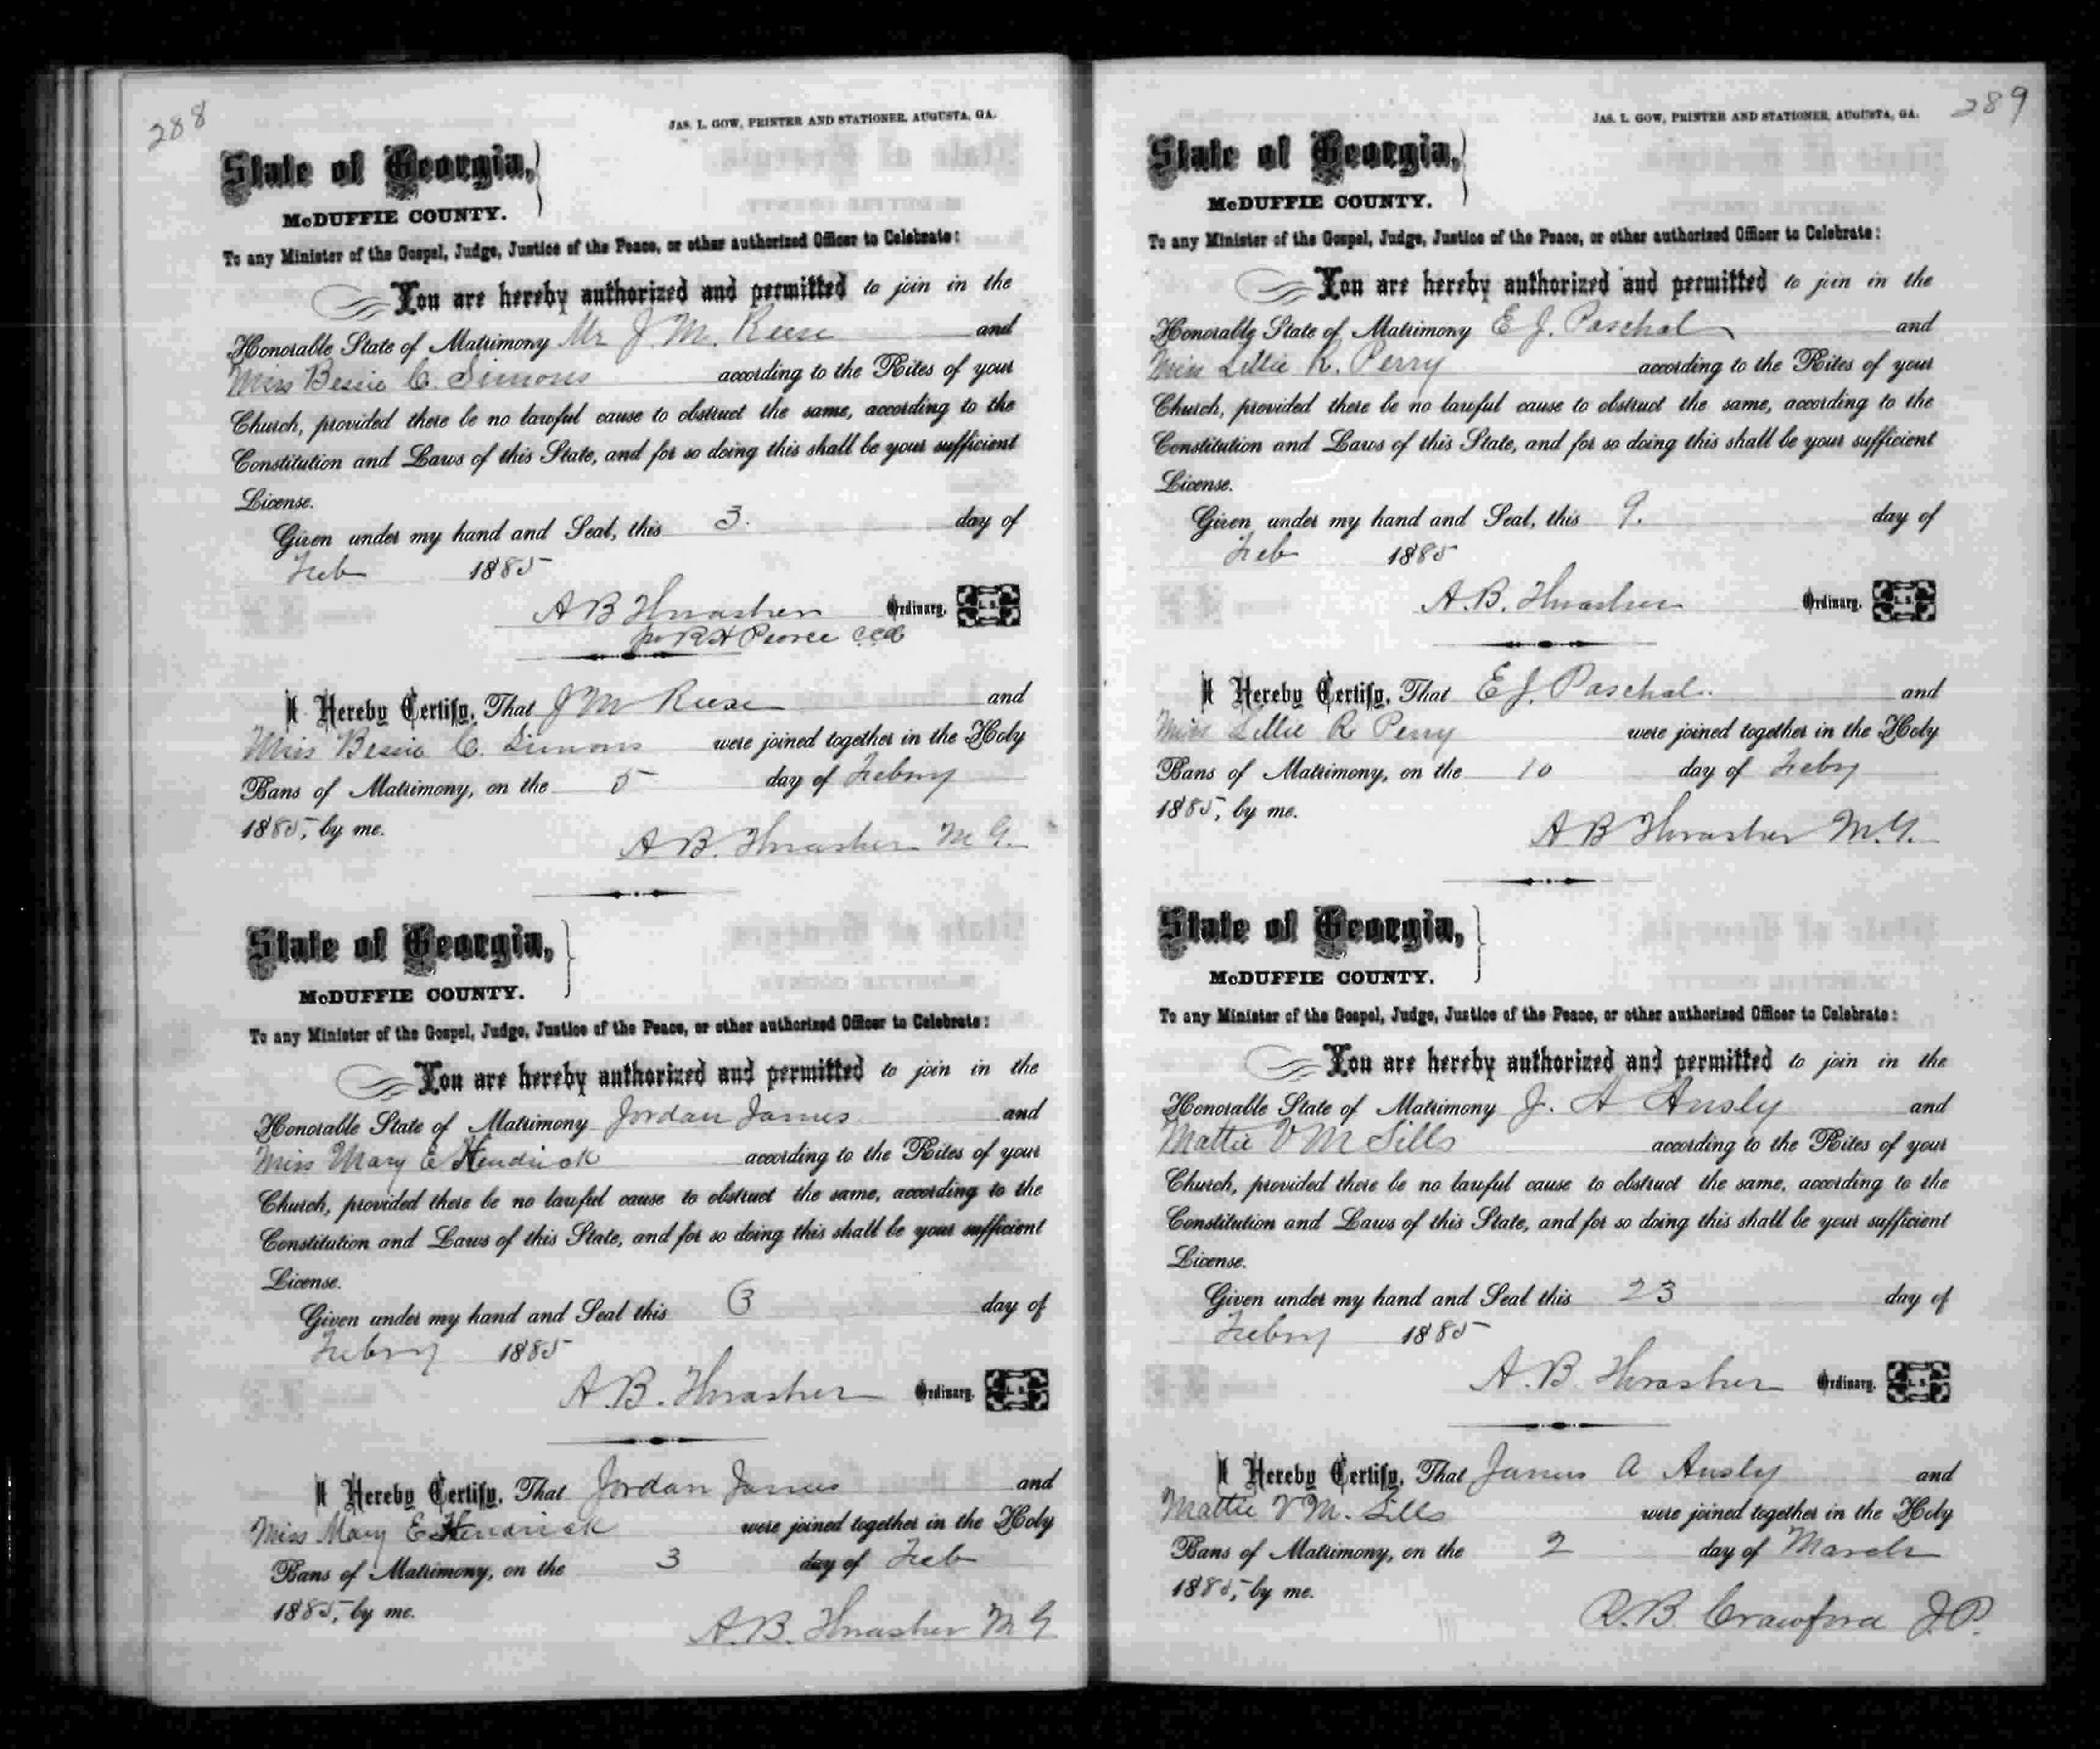 288
JAS. L. GOW, PRINTER AND STATIONER, AUGUSTA, GA.
State of Georgia,
McDUFFIE COUNTY.
To any Minister of the Gospel, Judge, Justice of the Peace, or other authorized Officer to Celebrate:
You are hereby authorized and permitted to join in the
Honorable State of Matrimony Mr J. M. Reese and
Miss Bessie C. Simons according to the Rites of your
Church, provided there be no lawful cause to obstruct the same, according to the
Constitution and Laws of this State, and for so doing this shall be your sufficient
License.
Given under my hand and Seal, this 3. day of
Feb 1885
A B Thrasher Ordinary. L. S.
pr R H Pearce CCO
I Hereby Certify, That J M Reese and
Miss Bessie C. Simons were joined together in the Holy
Bans of Matrimony, on the 5 day of Febry
1885, by me.
A B. Thrasher M G.
State of Georgia,
McDUFFIE COUNTY.
To any Minister of the Gospel, Judge, Justice of the Peace, or other authorized Officer to Celebrate:
You are hereby authorized and permitted to join in the
Honorable State of Matrimony Jordan James and
Miss Mary E Hendrick according to the Rites of your
Church, provided there be no lawful cause to obstruct the same, according to the
Constitution and Laws of this State, and for so doing this shall be your sufficient
License.
Given under my hand and Seal this 3 day of
Febry 1885
A. B. Thrasher Ordinary. L. S.
I Hereby Certify, That Jordan James and
Miss Mary E Hendrick were joined together in the Holy
Bans of Matrimony, on the 3 day of Feb
1885, by me.
A. B. Thrasher M G
289
JAS. L. GOW, PRINTER AND STATIONER, AUGUSTA, GA.
State of Georgia,
McDUFFIE COUNTY.
To any Minister of the Gospel, Judge, Justice of the Peace, or other authorized Officer to Celebrate:
You are hereby authorized and permitted to join in the
Honorable State of Matrimony E J. Paschal and
Miss Lillie R. Perry according to the Rites of your
Church, provided there be no lawful cause to obstruct the same, according to the
Constitution and Laws of this State, and for so doing this shall be your sufficient
License.
Given under my hand and Seal, this 9. day of
Feb 1885
A. B. Thrasher Ordinary. L. S.
I Hereby Certify, That E J. Paschal and
Miss Lillie R Perry were joined together in the Holy
Bans of Matrimony, on the 10 day of Febry
1885, by me.
A B Thrasher M. G.
State of Georgia,
McDUFFIE COUNTY.
To any Minister of the Gospel, Judge, Justice of the Peace, or other authorized Officer to Celebrate:
You are hereby authorized and permitted to join in the
Honorable State of Matrimony J. A Ansly and
Mattie V M Sills according to the Rites of your
Church, provided there be no lawful cause to obstruct the same, according to the
Constitution and Laws of this State, and for so doing this shall be your sufficient
License.
Given under my hand and Seal this 23 day of
Febry 1885
A. B. Thrasher Ordinary. L. S.
I Hereby Certify, That James A Ansly and
Mattie V M. Sills were joined together in the Holy
Bans of Matrimony, on the 2 day of March
1885, by me.
R. B. Crawford J. P.